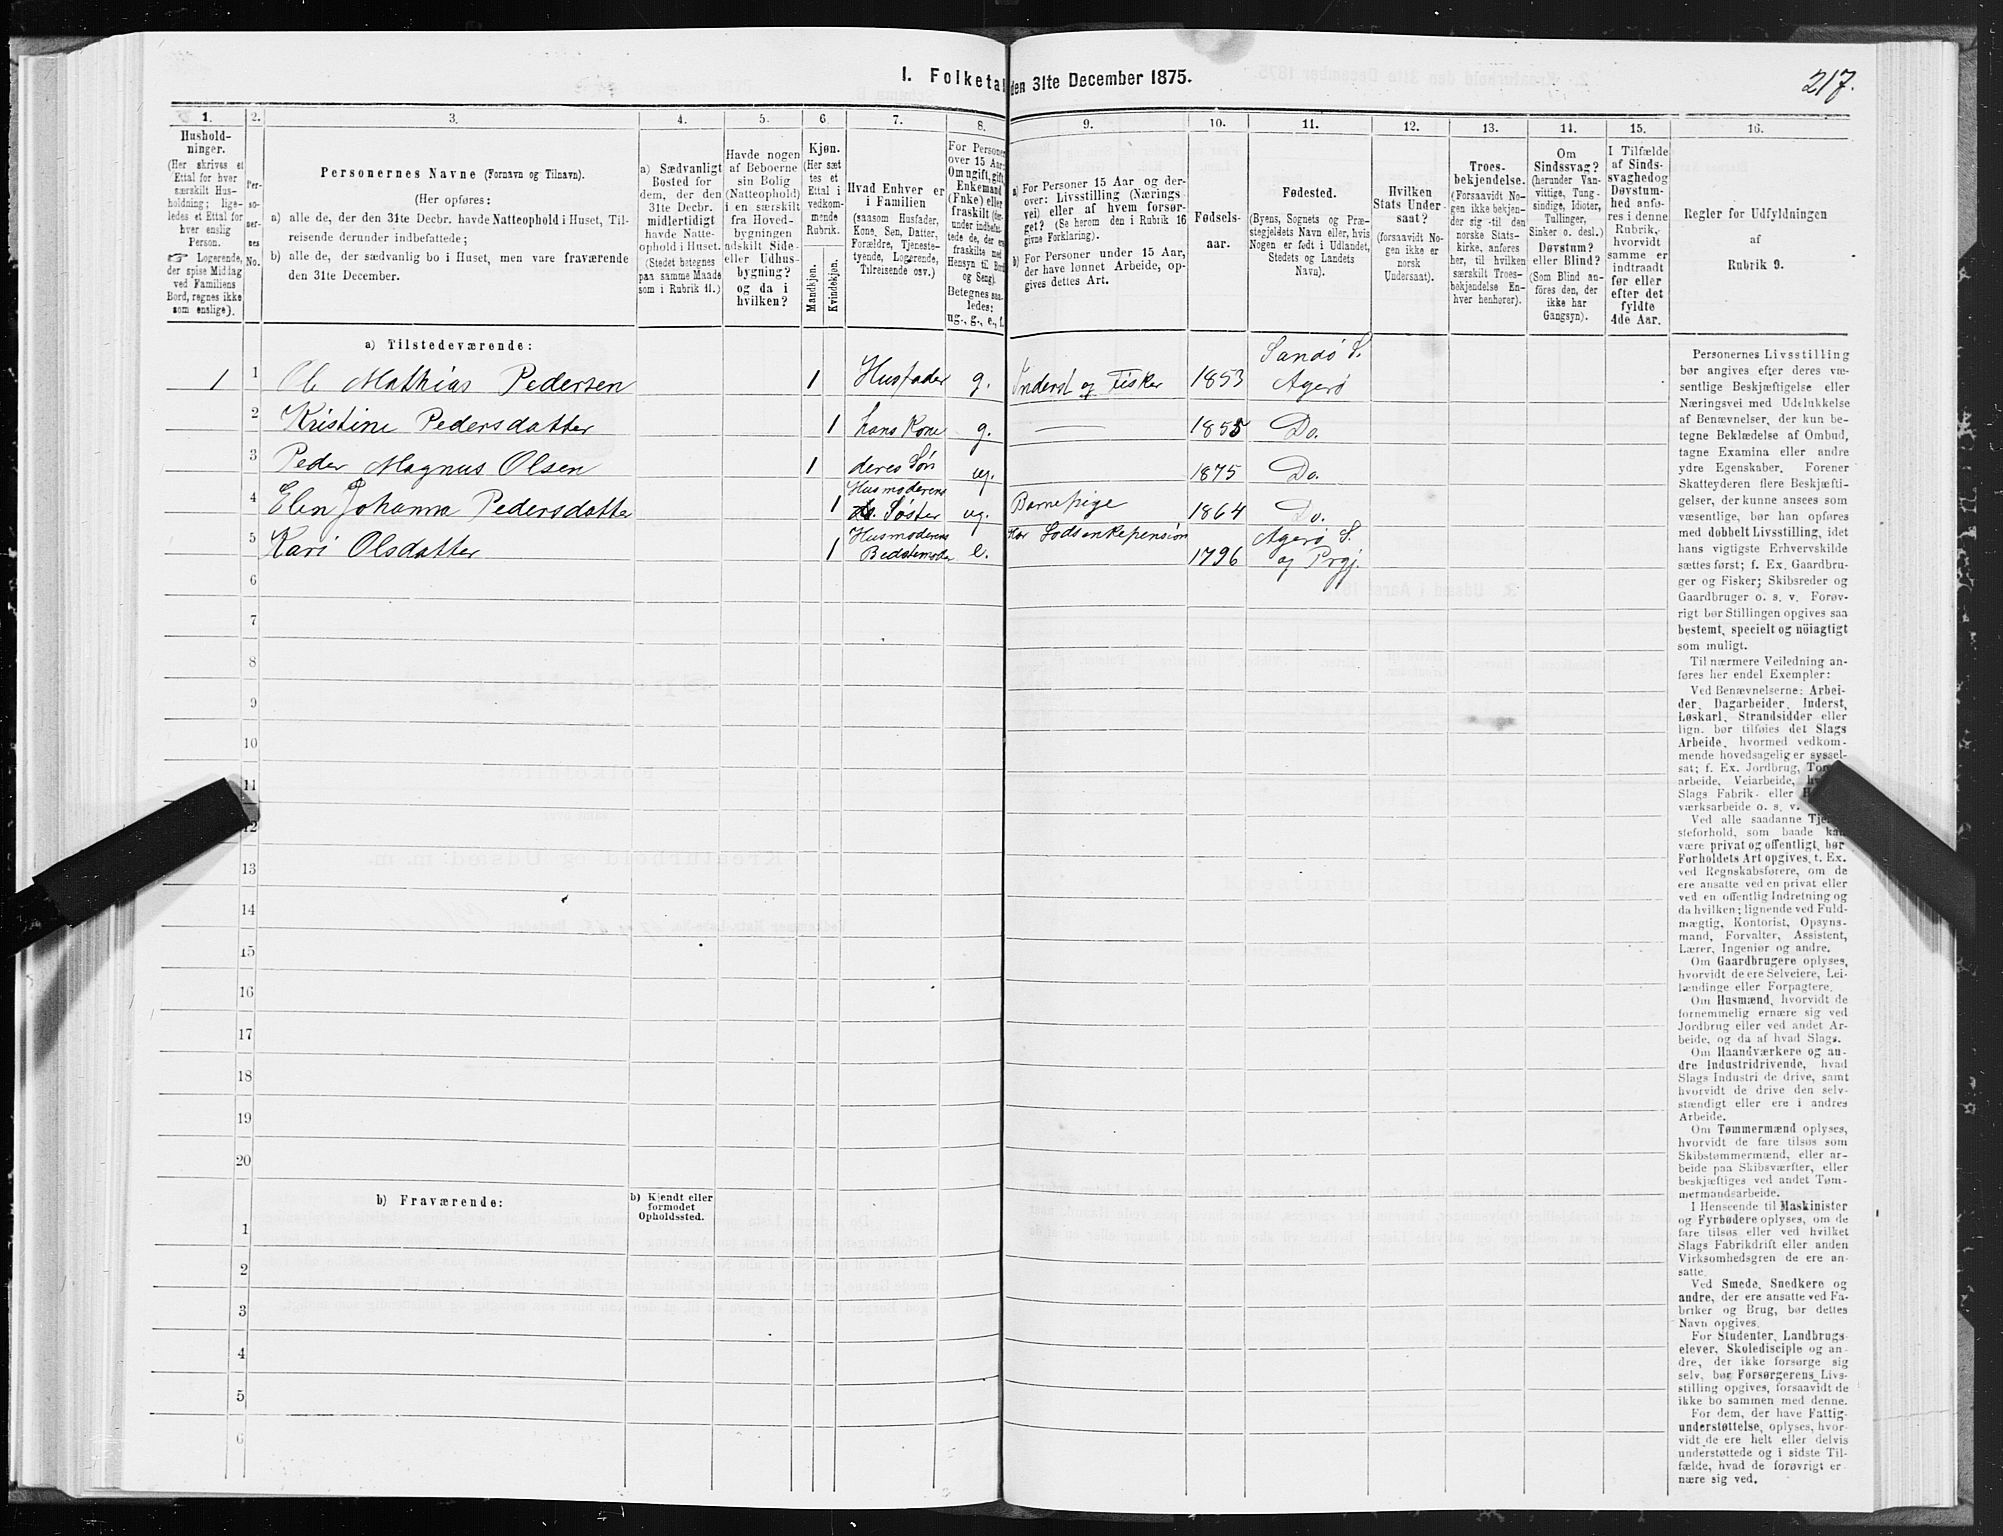 217.
I. Folketal den 31te December 1875.
1. 2. 3. 4. 5. 6. 7. 8. 9. 10. 11. 12. 13. 14. 15. 16.
Hushold-
ninger.
(Her skrives et
Ettal for hver
særskilt Hus-
holdning; lige-
ledes et Ettal for
hver enslig
Person.
☞ Logerende,
der spise Middag
ved Familiens
Bord, regnes ikke
som enslige).
Per-
so-
ner-
nes
No.
Personernes Navne (Fornavn og Tilnavn).
(Her opføres:
a) alle de, der den 31te Decbr. havde Natteophold i Huset, Til-
reisende derunder indbefattede;
b) alle de, der sædvanlig bo i Huset, men vare fraværende
den 31te December.
a) Sædvanligt
Bosted for
dem, der den
31te Decbr.
midlertidigt
havde Natte-
ophold i Huset.
(Stedet betegnes
paa samme Maade
som i Rubrik 11.)
Havde nogen
af Beboerne
sin Bolig
(Natteophold)
i en særskilt
fra Hoved-
bygningen
adskilt Side-
eller Udhus-
bygning?
og da i
hvilken?
Kjøn.
(Her sæt-
tes et
Ettal i
vedkom-
mende
Rubrik.
Mandkjøn.
Kvindekjøn.
Hvad Enhver er
i Familien
(saasom Husfader,
Kone, Søn, Datter,
Forældre, Tjeneste-
tyende, Logerende,
Tilreisende osv.)
For Personer
over 15 Aar:
Om ugift, gift,
Enkemand
(Enke) eller
fraskilt (der-
under indbefat-
tede de, der ere
fraskilte med
Hensyn til Bord
og Seng).
Betegnes saa-
ledes:
ug., g., e., f.
a) For Personer 15 Aar og der-
over: Livsstilling (Nærings-
vei) eller af hvem forsør-
get? (Se herom den i Rubrik 16
givne Forklaring).
b) For Personer under 15 Aar,
der have lønnet Arbeide, op-
gives dettes Art.
Fødsels-
aar.
Fødested.
(Byens, Sognets og Præ-
stegjeldets Navn eller, hvis
Nogen er født i Udlandet,
Stedets og Landets
Navn).
Hvilken
Stats Under-
saat?
(forsaavidt No-
gen ikke er
norsk
Undersaat).
Troes-
bekjendelse.
(Forsaavidt No-
gen ikke bekjen-
der sig til den
norske Stats-
kirke, anføres
her, til hvilken
særskilt Troes-
bekjendelse En-
hver henhører).
Om
Sindssvag?
(herunder Van-
vittige, Tung-
sindige, Idioter,
Tullinger,
Sinker o. desl.)
Døvstum?
eller Blind?
(Som Blind an-
føres den, der
ikke har
Gangsyn).
I Tilfælde
af Sinds-
svaghed og
Døvstum-
hed anfø-
res i denne
Rubrik,
hvorvidt
samme er
indtraadt
før eller
efter det
fyldte
4de Aar.
Regler for Udfyldningen
af
Rubrik 9.
a) Tilstedeværende:
1 1 Ole Mathias Pedersen 1 Husfader g. Inderst og Fisker 1853 Sandø S. Agerø
2 Kristine Pedersdatter 1 hans Kone g. — 1855 Do.
3 Peder Magnus Olsen 1 deres Søn ug. 1875 Do.
4 Elen Johanna Pedersdatter 1 Husmoderens Søster ug. Barnepige 1864 Do.
5 Kari Olsdatter 1 Husmoderens Bedstemoder e. Har Lodsenkepension 1796 Agerø S. og Prgj.
6
7
8
9
10
11
12
13
14
15
16
17
18
19
20
b) Fraværende:
b) Kjendt eller
formodet
Opholdssted.
1
2
3
4
5
6
Personernes Livsstilling
bør angives efter deres væ-
sentlige Beskjæftigelse eller
Næringsvei med Udelukkelse
af Benævnelser, der kun be-
tegne Beklædelse af Ombud,
tagne Examina eller andre
ydre Egenskaber. Forener
Skatteyderen flere Beskjæfti-
gelser, der kunne ansees som
væsentlige, bør han opføres
med dobbelt Livsstilling, idet
hans vigtigste Erhvervskilde
sættes først; f. Ex. Gaardbru-
ger og Fisker; Skibsreder og
Gaardbruger o. s. v. Forøv-
rigt bør Stillingen opgives saa
bestemt, specielt og nöiagtigt
som muligt.
Til nærmere Veiledning an-
føres her endel Exempler:
Ved Benævnelserne: Arbei-
der, Dagarbeider, Inderst,
Løskarl, Strandsidder eller
lign. bør tilføies det Slags
Arbeide, hvormed vedkom-
mende hovedsagelig er syssel-
sat; f. Ex. Jordbrug,
arbeide, Veiarbeide,
Slags Fabrik- eller
værksarbeide o. s. v.
Ved alle saadanne
steforhold, som baade kan
være privat og offentligt, bør
Forholdets Art opgives, f. Ex.
ved Regnskabsførere, om de
ere ansatte ved en privat eller
ved en offentlig Indretning og
da hvilken; lignende ved Fuld-
mægtig, Kontorist, Opsyns-
mand, Forvalter, Assistent,
Lærer, Ingeniør og andre.
Om Gaardbrugere oplyses,
hvorvidt de ere Selveiere, Lei-
lændinge eller Forpagtere.
Om Husmænd, hvorvidt de
fornemmelig ernære sig ved
Jordbrug eller ved andet Ar-
beide, og da af hvad Slags.
Om Haandværkere og an-
dre Industridrivende, hvad
Slags Industri de drive, samt
hvorvidt de drive den selv-
stændigt eller ere i andres
Arbeide.
Om Tømmermænd oplyses,
hvorvidt de fare tilsøs som
Skibstømmermænd, eller ar-
beide paa Skibsværfter, eller
beskjæftiges ved andet Tøm-
mermandsarbeide.
I Henseende til Maskinister
og Fyrbødere oplyses, om de
fare tilsøs eller ved hvilket
Slags Fabrikdrift eller anden
Virksomhedsgren de ere an-
satte.
Ved Smede, Snedkere og
andre, der ere ansatte ved Fa-
briker og Brug, bør dettes
Navn opgives.
For Studenter, Landbrugs-
elever, Skoledisciple og an-
dre, der ikke forsørge sig
selv, bør Forsørgerens Livs-
stilling opgives, forsaavidt de
ikke bo sammen med denne.
For dem, der have Fattig-
understøttelse, oplyses, hvor-
vidt de ere helt eller delvis
understøttede og i sidste Til-
fælde, hvad de forøvrigt er-
nære sig ved.